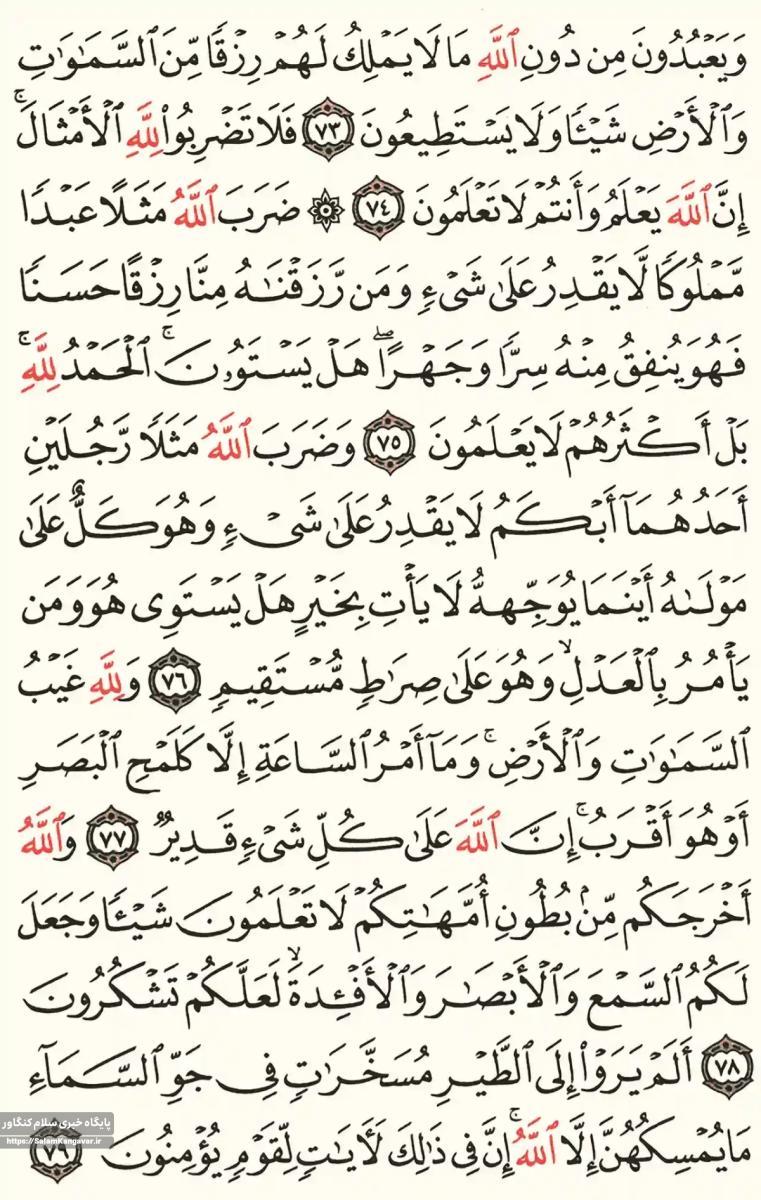 وَيَعْبُدُونَ مِن دُونِ ٱللَّهِ مَا لَا يَمْلِكُ لَهُمْ رِزْقًا مِّنَ ٱلسَّمَٰوَٰتِ
وَٱلْأَرْضِ شَيْـًٔا وَلَا يَسْتَطِيعُونَ ٧٣ فَلَا تَضْرِبُوا۟ لِلَّهِ ٱلْأَمْثَالَ ۚ
إِنَّ ٱللَّهَ يَعْلَمُ وَأَنتُمْ لَا تَعْلَمُونَ ٧٤ ۞ ضَرَبَ ٱللَّهُ مَثَلًا عَبْدًا
مَّمْلُوكًا لَّا يَقْدِرُ عَلَىٰ شَىْءٍ وَمَن رَّزَقْنَٰهُ مِنَّا رِزْقًا حَسَنًا
فَهُوَ يُنفِقُ مِنْهُ سِرًّا وَجَهْرًا ۖ هَلْ يَسْتَوُۥنَ ۚ ٱلْحَمْدُ لِلَّهِ ۚ
بَلْ أَكْثَرُهُمْ لَا يَعْلَمُونَ ٧٥ وَضَرَبَ ٱللَّهُ مَثَلًا رَّجُلَيْنِ
أَحَدُهُمَآ أَبْكَمُ لَا يَقْدِرُ عَلَىٰ شَىْءٍ وَهُوَ كَلٌّ عَلَىٰ
مَوْلَىٰهُ أَيْنَمَا يُوَجِّههُّ لَا يَأْتِ بِخَيْرٍ هَلْ يَسْتَوِى هُوَ وَمَن
يَأْمُرُ بِٱلْعَدْلِ ۙ وَهُوَ عَلَىٰ صِرَٰطٍ مُّسْتَقِيمٍ ٧٦ وَلِلَّهِ غَيْبُ
ٱلسَّمَٰوَٰتِ وَٱلْأَرْضِ ۚ وَمَآ أَمْرُ ٱلسَّاعَةِ إِلَّا كَلَمْحِ ٱلْبَصَرِ
أَوْ هُوَ أَقْرَبُ ۚ إِنَّ ٱللَّهَ عَلَىٰ كُلِّ شَىْءٍ قَدِيرٌ ٧٧ وَٱللَّهُ
أَخْرَجَكُم مِّنۢ بُطُونِ أُمَّهَٰتِكُمْ لَا تَعْلَمُونَ شَيْـًٔا وَجَعَلَ
لَكُمُ ٱلسَّمْعَ وَٱلْأَبْصَٰرَ وَٱلْأَفْـِٔدَةَ ۙ لَعَلَّكُمْ تَشْكُرُونَ
٧٨ أَلَمْ يَرَوْا۟ إِلَى ٱلطَّيْرِ مُسَخَّرَٰتٍ فِى جَوِّ ٱلسَّمَآءِ
مَا يُمْسِكُهُنَّ إِلَّا ٱللَّهُ ۗ إِنَّ فِى ذَٰلِكَ لَـَٔايَٰتٍ لِّقَوْمٍ يُؤْمِنُونَ ٧٩
پایگاه خبری سلام کنگاور
https://SalamKangavar.ir